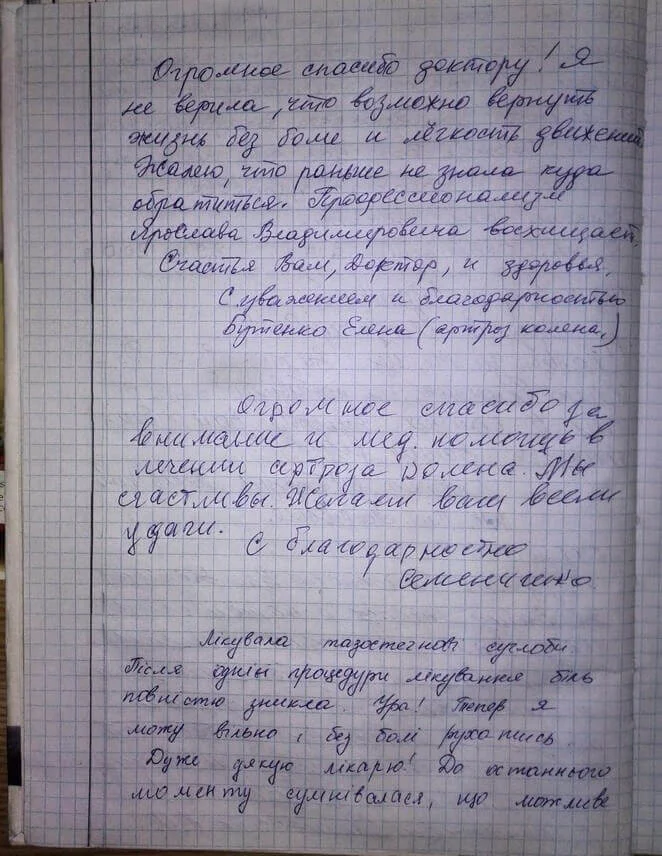 Огромное спасибо доктору! Я
не верила, что возможно вернуть
жизнь без боле и лёгкость движений.
Жалею, что раньше не знала куда
обратиться. Профессионализм
Ярослава Владимировича восхищает.
Счастья Вам, Доктор, и здоровья.
С уважением и благодарностью
Бутенко Елена (артроз колена.)
Огромное спасибо за
внимание и мед. помощь в
лечении артроза колена. Мы
счастливы. Желаем вам всем
удачи.
С благодарностью
Семениченко
Лікувала тазостегнові суглоби.
Після одніы процедури лікування біль
повністю зникла. Ура! Тепер я
можу вільно і без болі рухатись.
Дуже дякую лікарю! До останнього
моменту сумнівалася, що можливе